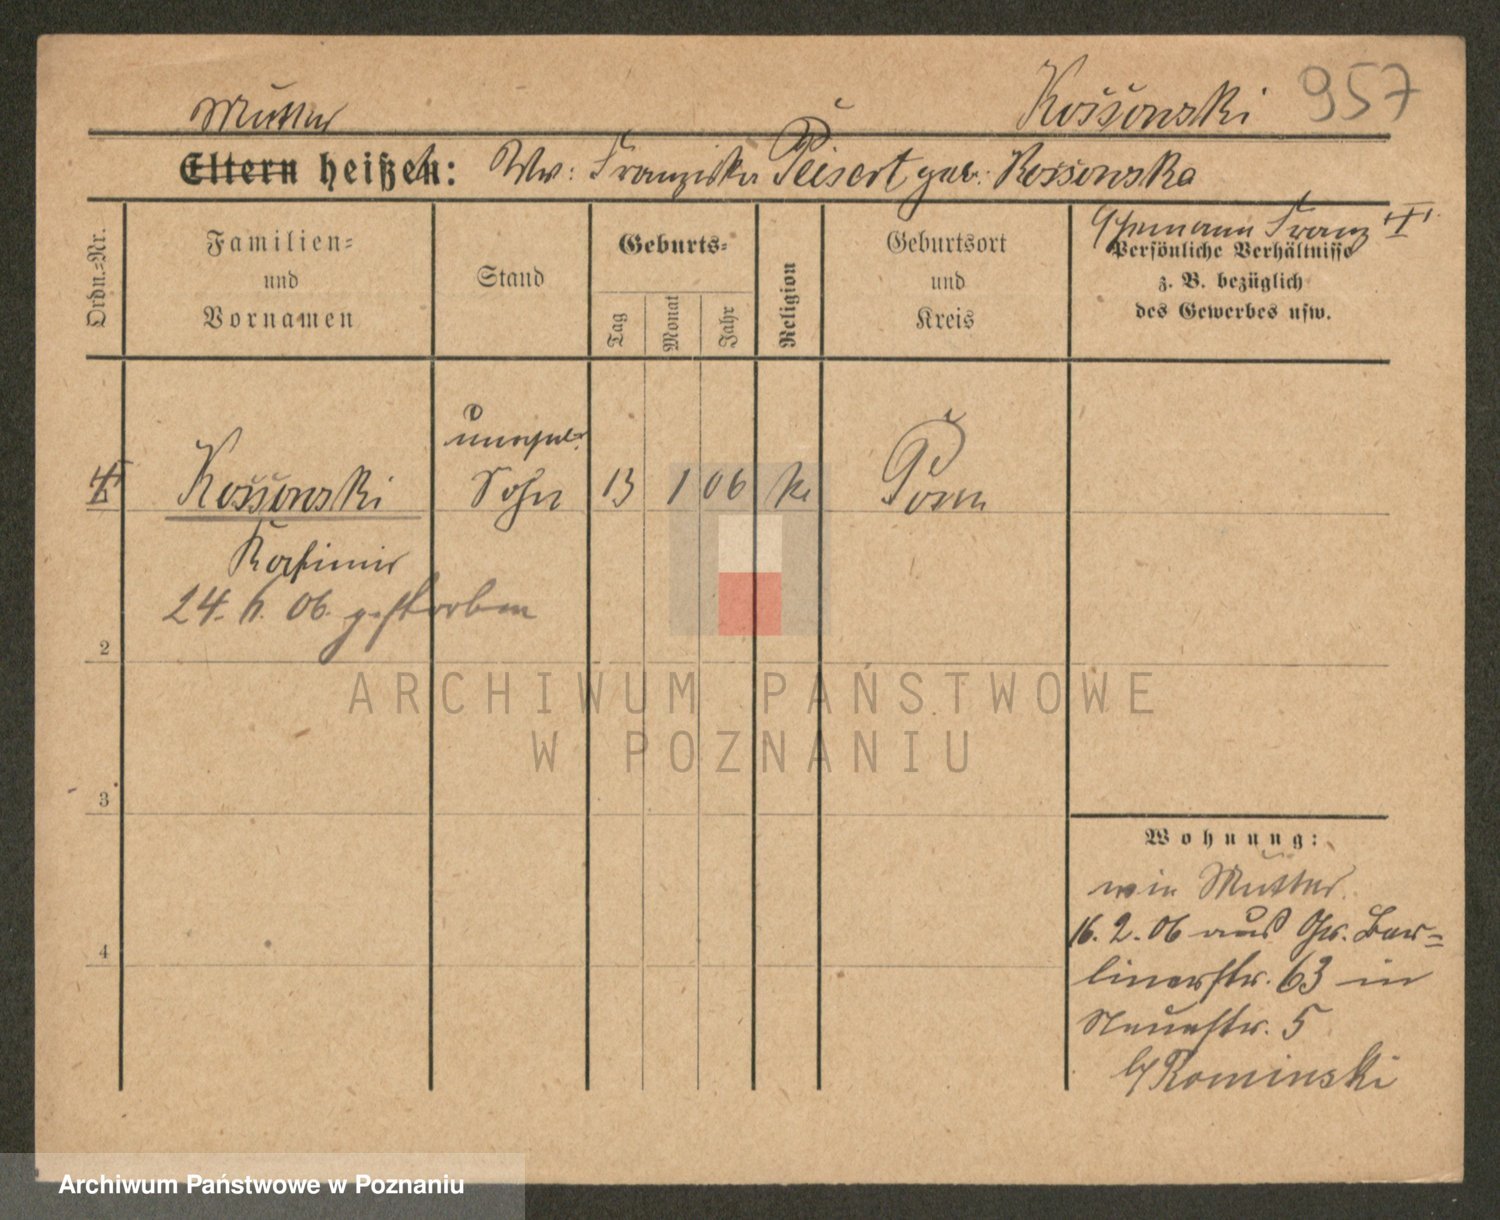 Kossowski 957
Mutter
Eltern heißen: Ww: Franziska Peisert geb. Kossowska
Ehemann Franz
Ordn.-Nr.
Familien-
und
Vornamen
Stand
Geburts-
Tag
Monat
Jahr
Religion
Geburtsort
und
Kreis
Persönliche Verhältnisse
z. B. bezüglich
des Gewerbes usw.
unehel.
Kossowski Sohn 13 1 06 k. Posen
Kasimir
24. 6. 06. gestorben
2
3
4
Wohnung:
wie Mutter.
16. 2. 06 aus Gr. Ber-
linerstr. 63 in
Neuestr. 5
b/ Rominski
ARCHIWUM PAŃSTWOWE
W POZNANIU
Archiwum Państwowe w Poznaniu